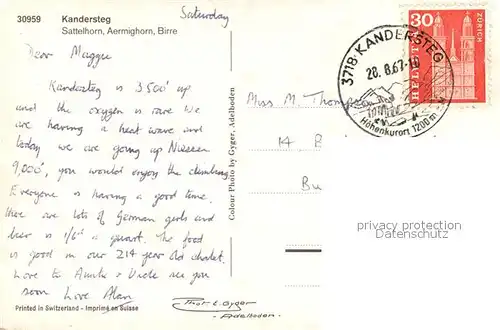 30959 Kandersteg
Sattelhorn, Aermighorn, Birre
Saturday
Dear Maggie
Kandersteg is 3,500' up
and the oxygen is rare. We
are having a heat wave and
today we are going up Niesen
9,000', you would enjoy the climbing.
Everyone is having a good time.
there are lots of German girls and
beer is 1/6d a quart. The food
is good in our 214 year old chalet.
Love to Auntie + Uncle see you
soon Love Alan
Printed in Switzerland - Imprimé en Suisse
Colour Photo by Gyger, Adelboden
Phot. E. Gyger
Adelboden
Miss M. Thompson
14 B
Bu
3718 KANDERSTEG
28.8.67-10
Höhenkurort 1200 m
30
HELVETIA
ZÜRICH
privacy protection
DANIMARIS